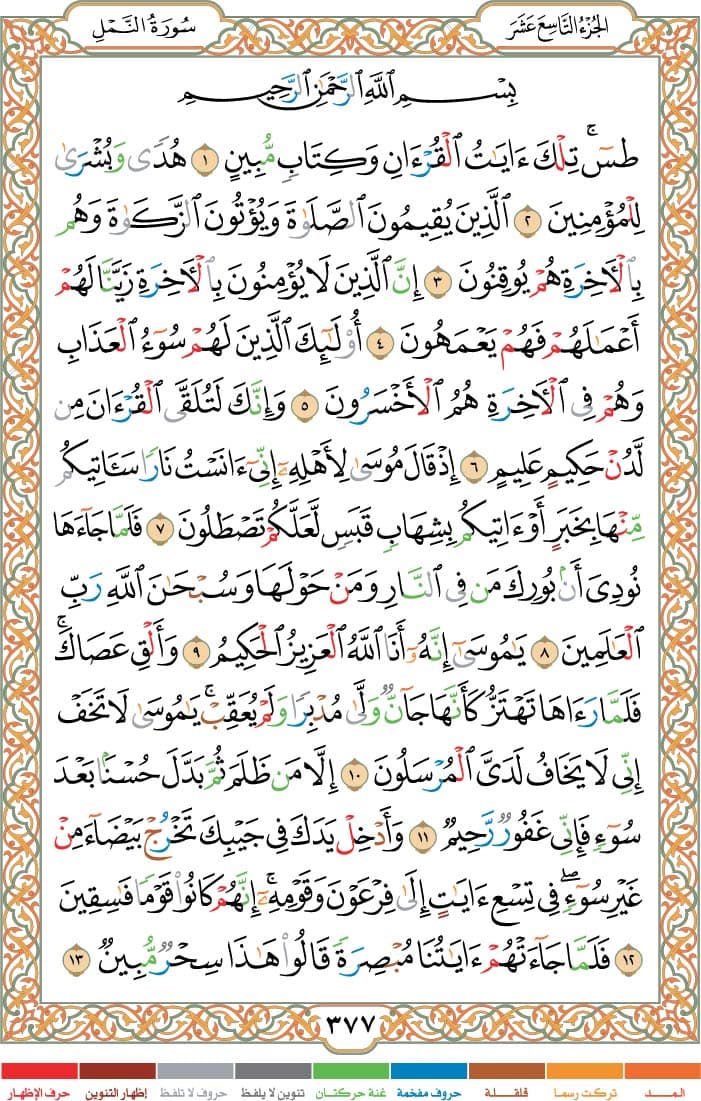 الجزء التاسع عشر
سورة النمل
بِسْمِ ٱللَّهِ ٱلرَّحْمَٰنِ ٱلرَّحِيمِ
طسٓ ۚ تِلْكَ ءَايَٰتُ ٱلْقُرْءَانِ وَكِتَابٍ مُّبِينٍ ١ هُدًى وَبُشْرَىٰ
لِلْمُؤْمِنِينَ ٢ ٱلَّذِينَ يُقِيمُونَ ٱلصَّلَوٰةَ وَيُؤْتُونَ ٱلزَّكَوٰةَ وَهُم
بِٱلْءَاخِرَةِ هُمْ يُوقِنُونَ ٣ إِنَّ ٱلَّذِينَ لَا يُؤْمِنُونَ بِٱلْءَاخِرَةِ زَيَّنَّا لَهُمْ
أَعْمَٰلَهُمْ فَهُمْ يَعْمَهُونَ ٤ أُو۟لَٰٓئِكَ ٱلَّذِينَ لَهُمْ سُوٓءُ ٱلْعَذَابِ
وَهُمْ فِى ٱلْءَاخِرَةِ هُمُ ٱلْأَخْسَرُونَ ٥ وَإِنَّكَ لَتُلَقَّى ٱلْقُرْءَانَ مِن
لَّدُنْ حَكِيمٍ عَلِيمٍ ٦ إِذْ قَالَ مُوسَىٰ لِأَهْلِهِۦٓ إِنِّىٓ ءَانَسْتُ نَارًا سَـَٔاتِيكُم
مِّنْهَا بِخَبَرٍ أَوْ ءَاتِيكُم بِشِهَابٍ قَبَسٍ لَّعَلَّكُمْ تَصْطَلُونَ ٧ فَلَمَّا جَآءَهَا
نُودِىَ أَنۢ بُورِكَ مَن فِى ٱلنَّارِ وَمَنْ حَوْلَهَا وَسُبْحَٰنَ ٱللَّهِ رَبِّ
ٱلْعَٰلَمِينَ ٨ يَٰمُوسَىٰٓ إِنَّهُۥٓ أَنَا ٱللَّهُ ٱلْعَزِيزُ ٱلْحَكِيمُ ٩ وَأَلْقِ عَصَاكَ ۚ
فَلَمَّا رَءَاهَا تَهْتَزُّ كَأَنَّهَا جَآنٌّ وَلَّىٰ مُدْبِرًا وَلَمْ يُعَقِّبْ ۚ يَٰمُوسَىٰ لَا تَخَفْ
إِنِّى لَا يَخَافُ لَدَىَّ ٱلْمُرْسَلُونَ ١٠ إِلَّا مَن ظَلَمَ ثُمَّ بَدَّلَ حُسْنًۢا بَعْدَ
سُوٓءٍ فَإِنِّى غَفُورٌ رَّحِيمٌ ١١ وَأَدْخِلْ يَدَكَ فِى جَيْبِكَ تَخْرُجْ بَيْضَآءَ مِنْ
غَيْرِ سُوٓءٍ ۖ فِى تِسْعِ ءَايَٰتٍ إِلَىٰ فِرْعَوْنَ وَقَوْمِهِۦٓ ۚ إِنَّهُمْ كَانُوا۟ قَوْمًا فَٰسِقِينَ
١٢ فَلَمَّا جَآءَتْهُمْ ءَايَٰتُنَا مُبْصِرَةً قَالُوا۟ هَٰذَا سِحْرٌ مُّبِينٌ ١٣
٣٧٧
المـــد تركت رسما قلقـلة حروف مفخمة غنة حركتان تنوين لا يلفظ حروف لا تلفظ إظهار التنوين حرف الإظهار